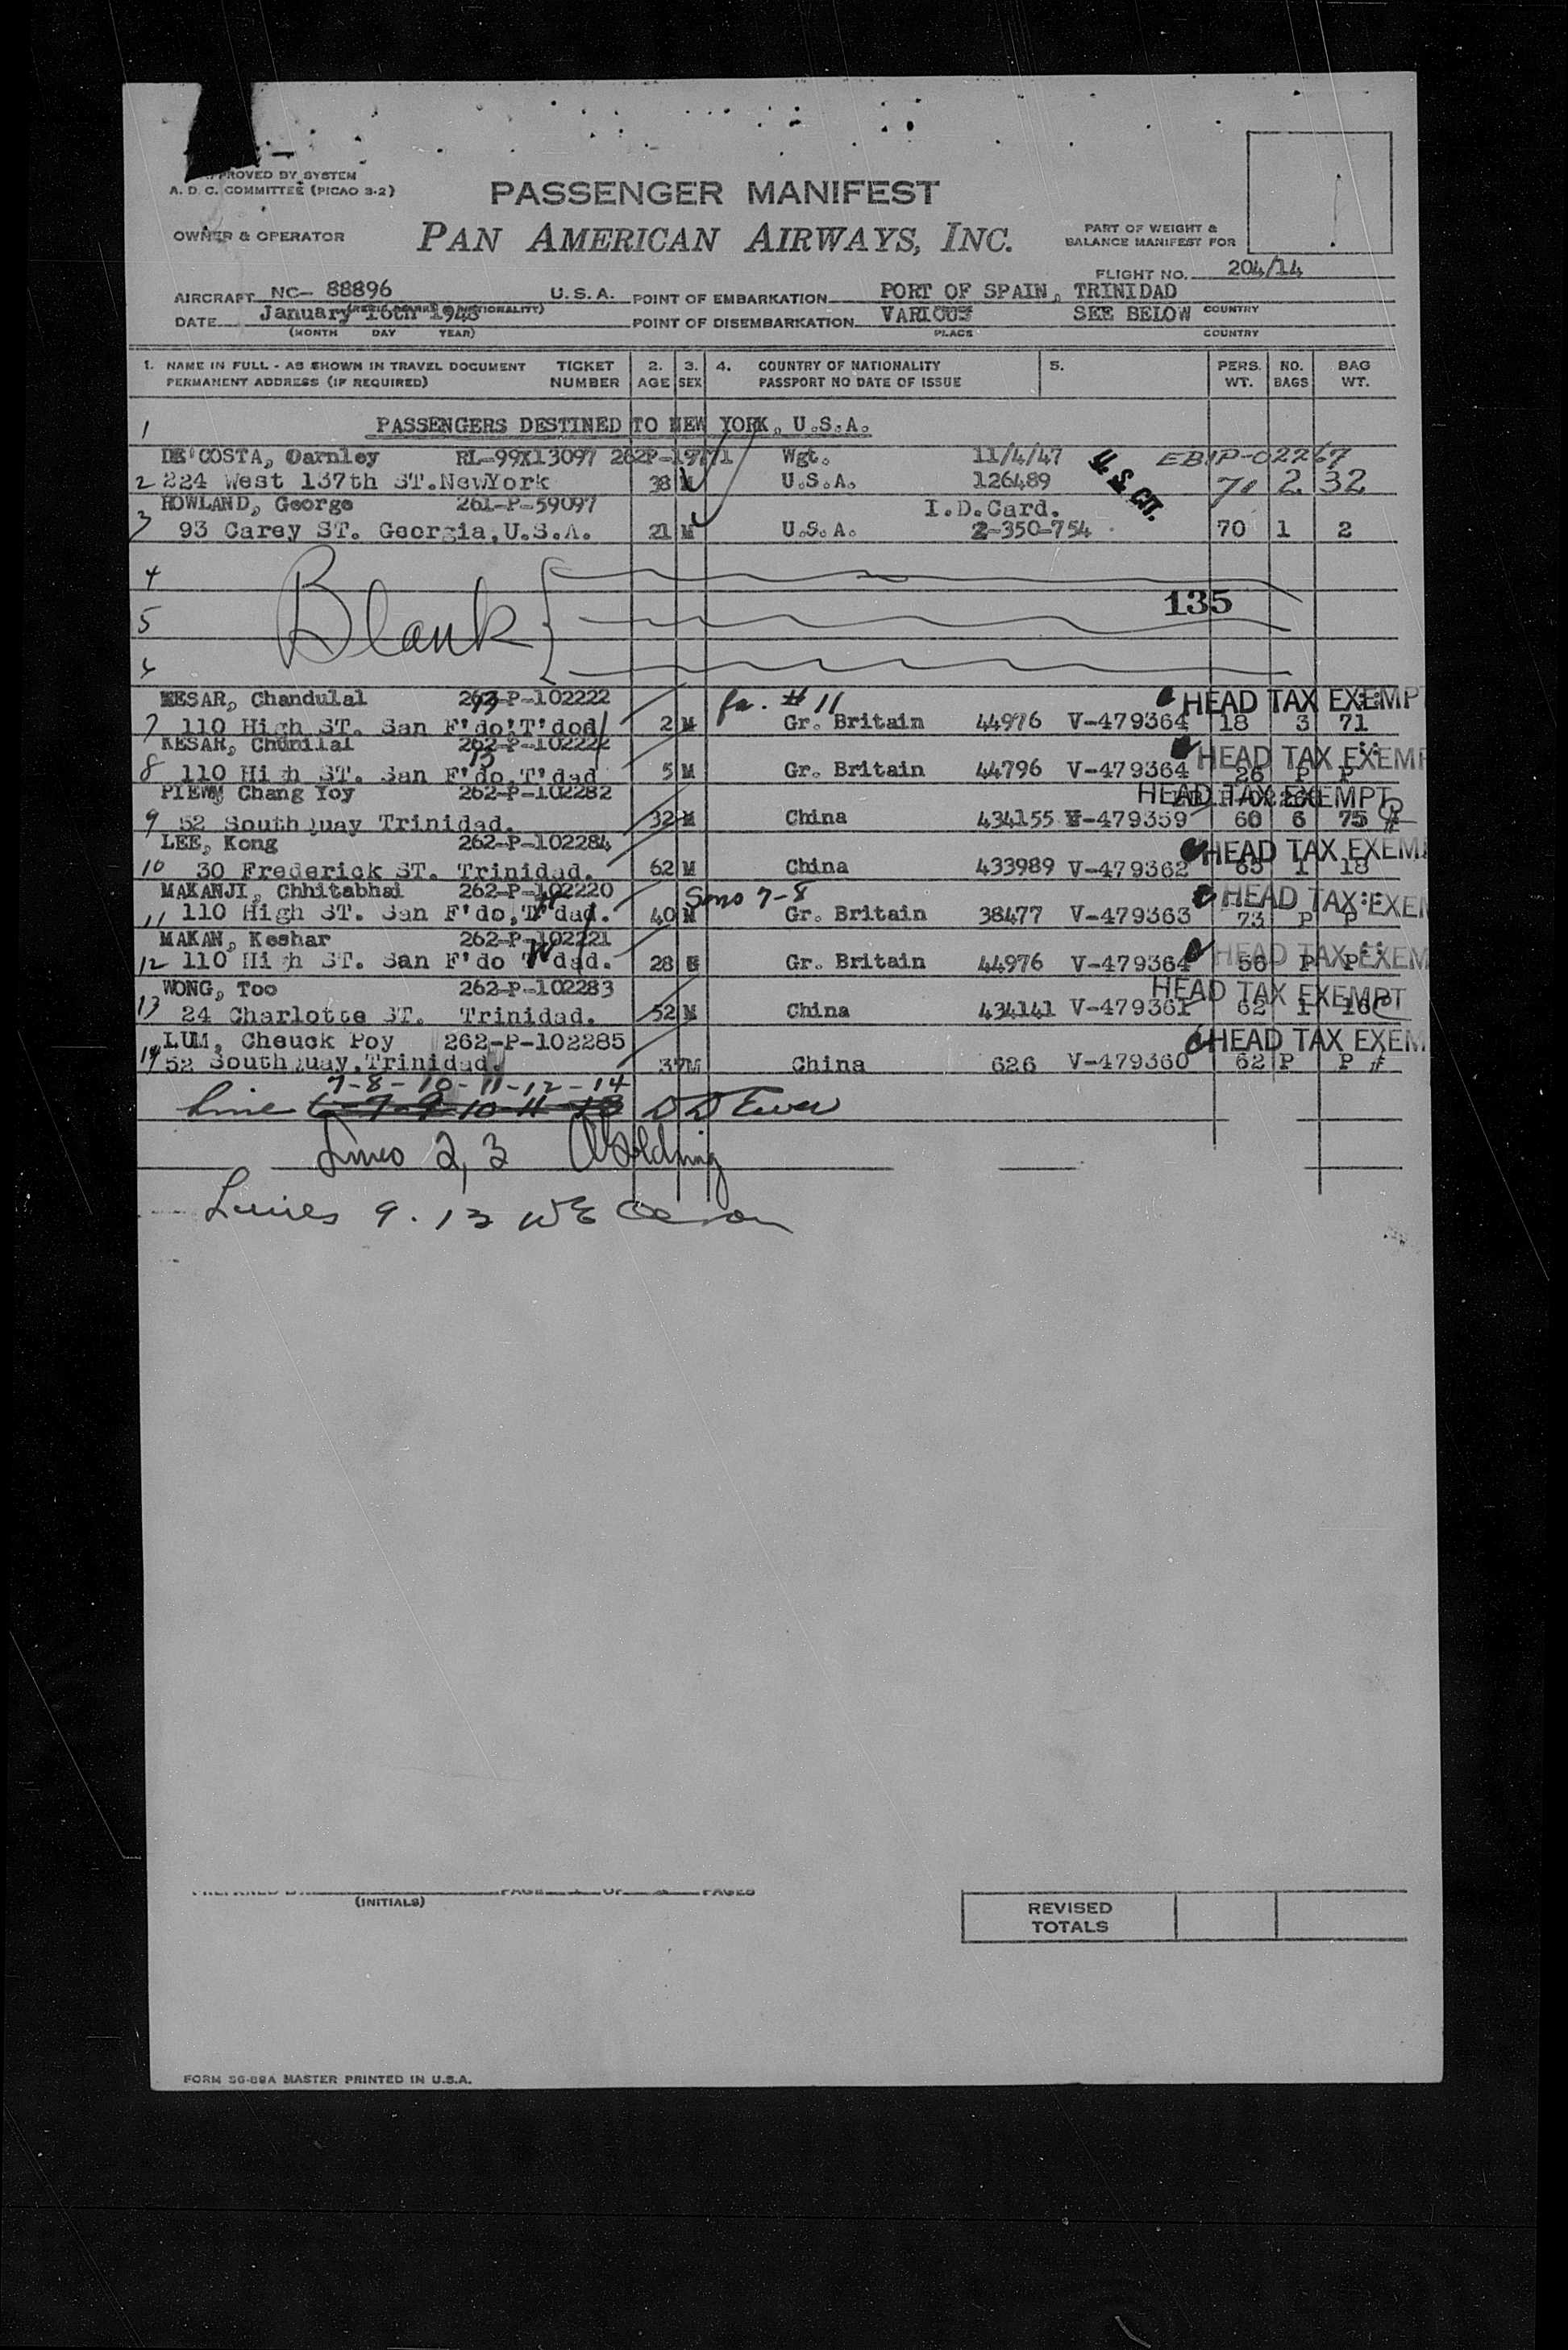 PROVED BY SYSTEM
A. D. C. COMMITTEE (PICAO 3-2)
PASSENGER MANIFEST
OWNER & OPERATOR
PAN AMERICAN AIRWAYS, INC.
PART OF WEIGHT &
BALANCE MANIFEST FOR
FLIGHT NO. 204/14
AIRCRAFT NC- 88896 U.S.A. POINT OF EMBARKATION PORT OF SPAIN, TRINIDAD
DATE January 16th POINT OF DISEMBARKATION VARIOUS SEE BELOW COUNTRY
(MONTH DAY YEAR) PLACE COUNTRY
1. NAME IN FULL - AS SHOWN IN TRAVEL DOCUMENT TICKET 2. 3. 4. COUNTRY OF NATIONALITY 5. PERS. NO. BAG
PERMANENT ADDRESS (IF REQUIRED) NUMBER AGE SEX PASSPORT NO DATE OF ISSUE WT. BAGS WT.
1 PASSENGERS DESTINED TO NEW YORK, U.S.A.
DE'COSTA, Oarnley RL-99X13097 262P-19771 Wgt. 11/4/47 EBIP-02267
2 224 West 137th ST.NewYork 38 M U.S.A. 126489 U.S. CIT. 71 2 32
HOWLAND, George 261-P-59097 I.D.Card.
3 93 Carey ST. Georgia,U.S.A. 21 M U.S.A. 2-350-754 70 1 2
4
5 Blank 135
6
KESAR, Chandulal 262-P-102222 fa. # 11 HEAD TAX EXEMP
7 110 High ST. San F'do,T'dad 2 M Gr. Britain 44976 V-479364 18 3 71
KESAR, Chunilal 262-P-102222 HEAD TAX EXEMP
8 110 High ST. San F'do,T'dad 5 M Gr. Britain 44796 V-479364 26 P P
PIEWM Chang Yoy 262-P-102282 HEAD TAX EXEMPT
9 52 South Quay Trinidad. 32 M China 434155 V-479359 60 6 75 #
LEE, Kong 262-P-102284 HEAD TAX EXEM
10 30 Frederick ST. Trinidad. 62 M China 433989 V-479362 65 1 18
MAKANJI, Chhitabhai 262-P-102220 Sons 7-8 HEAD TAX EXEM
11 110 High ST. San F'do,T'dad. 40 M Gr. Britain 38477 V-479363 73 P P
MAKAN, Keshar 262-P-102221 HEAD TAX EXEM
12 110 High ST. San F'do T'dad. 28 Gr. Britain 44976 V-479364 56 P P
WONG, Too 262-P-102283 HEAD TAX EXEMPT
13 24 Charlotte ST. Trinidad. 52 M China 434141 V-479361 62 1 16
LUM, Cheuck Poy 262-P-102285 HEAD TAX EXEM
14 52 South Quay,Trinidad. 37 M China 626 V-479360 62 P P #
7-8-10-11-12-14
Line
Lines 2, 3
Lines 9. 13
(INITIALS)
REVISED
TOTALS
FORM 36-89A MASTER PRINTED IN U.S.A.